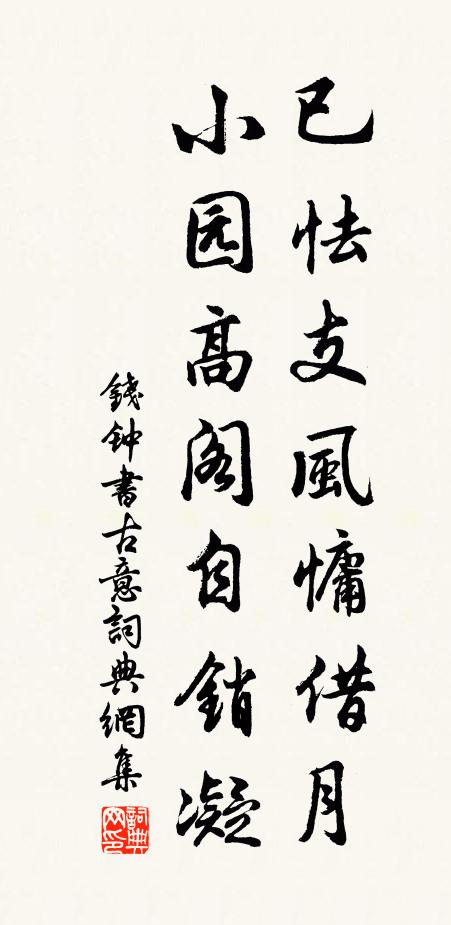 已怯支風慵借月
小园高阁自銷凝
錢钟書古意詞典網集
詞典网印